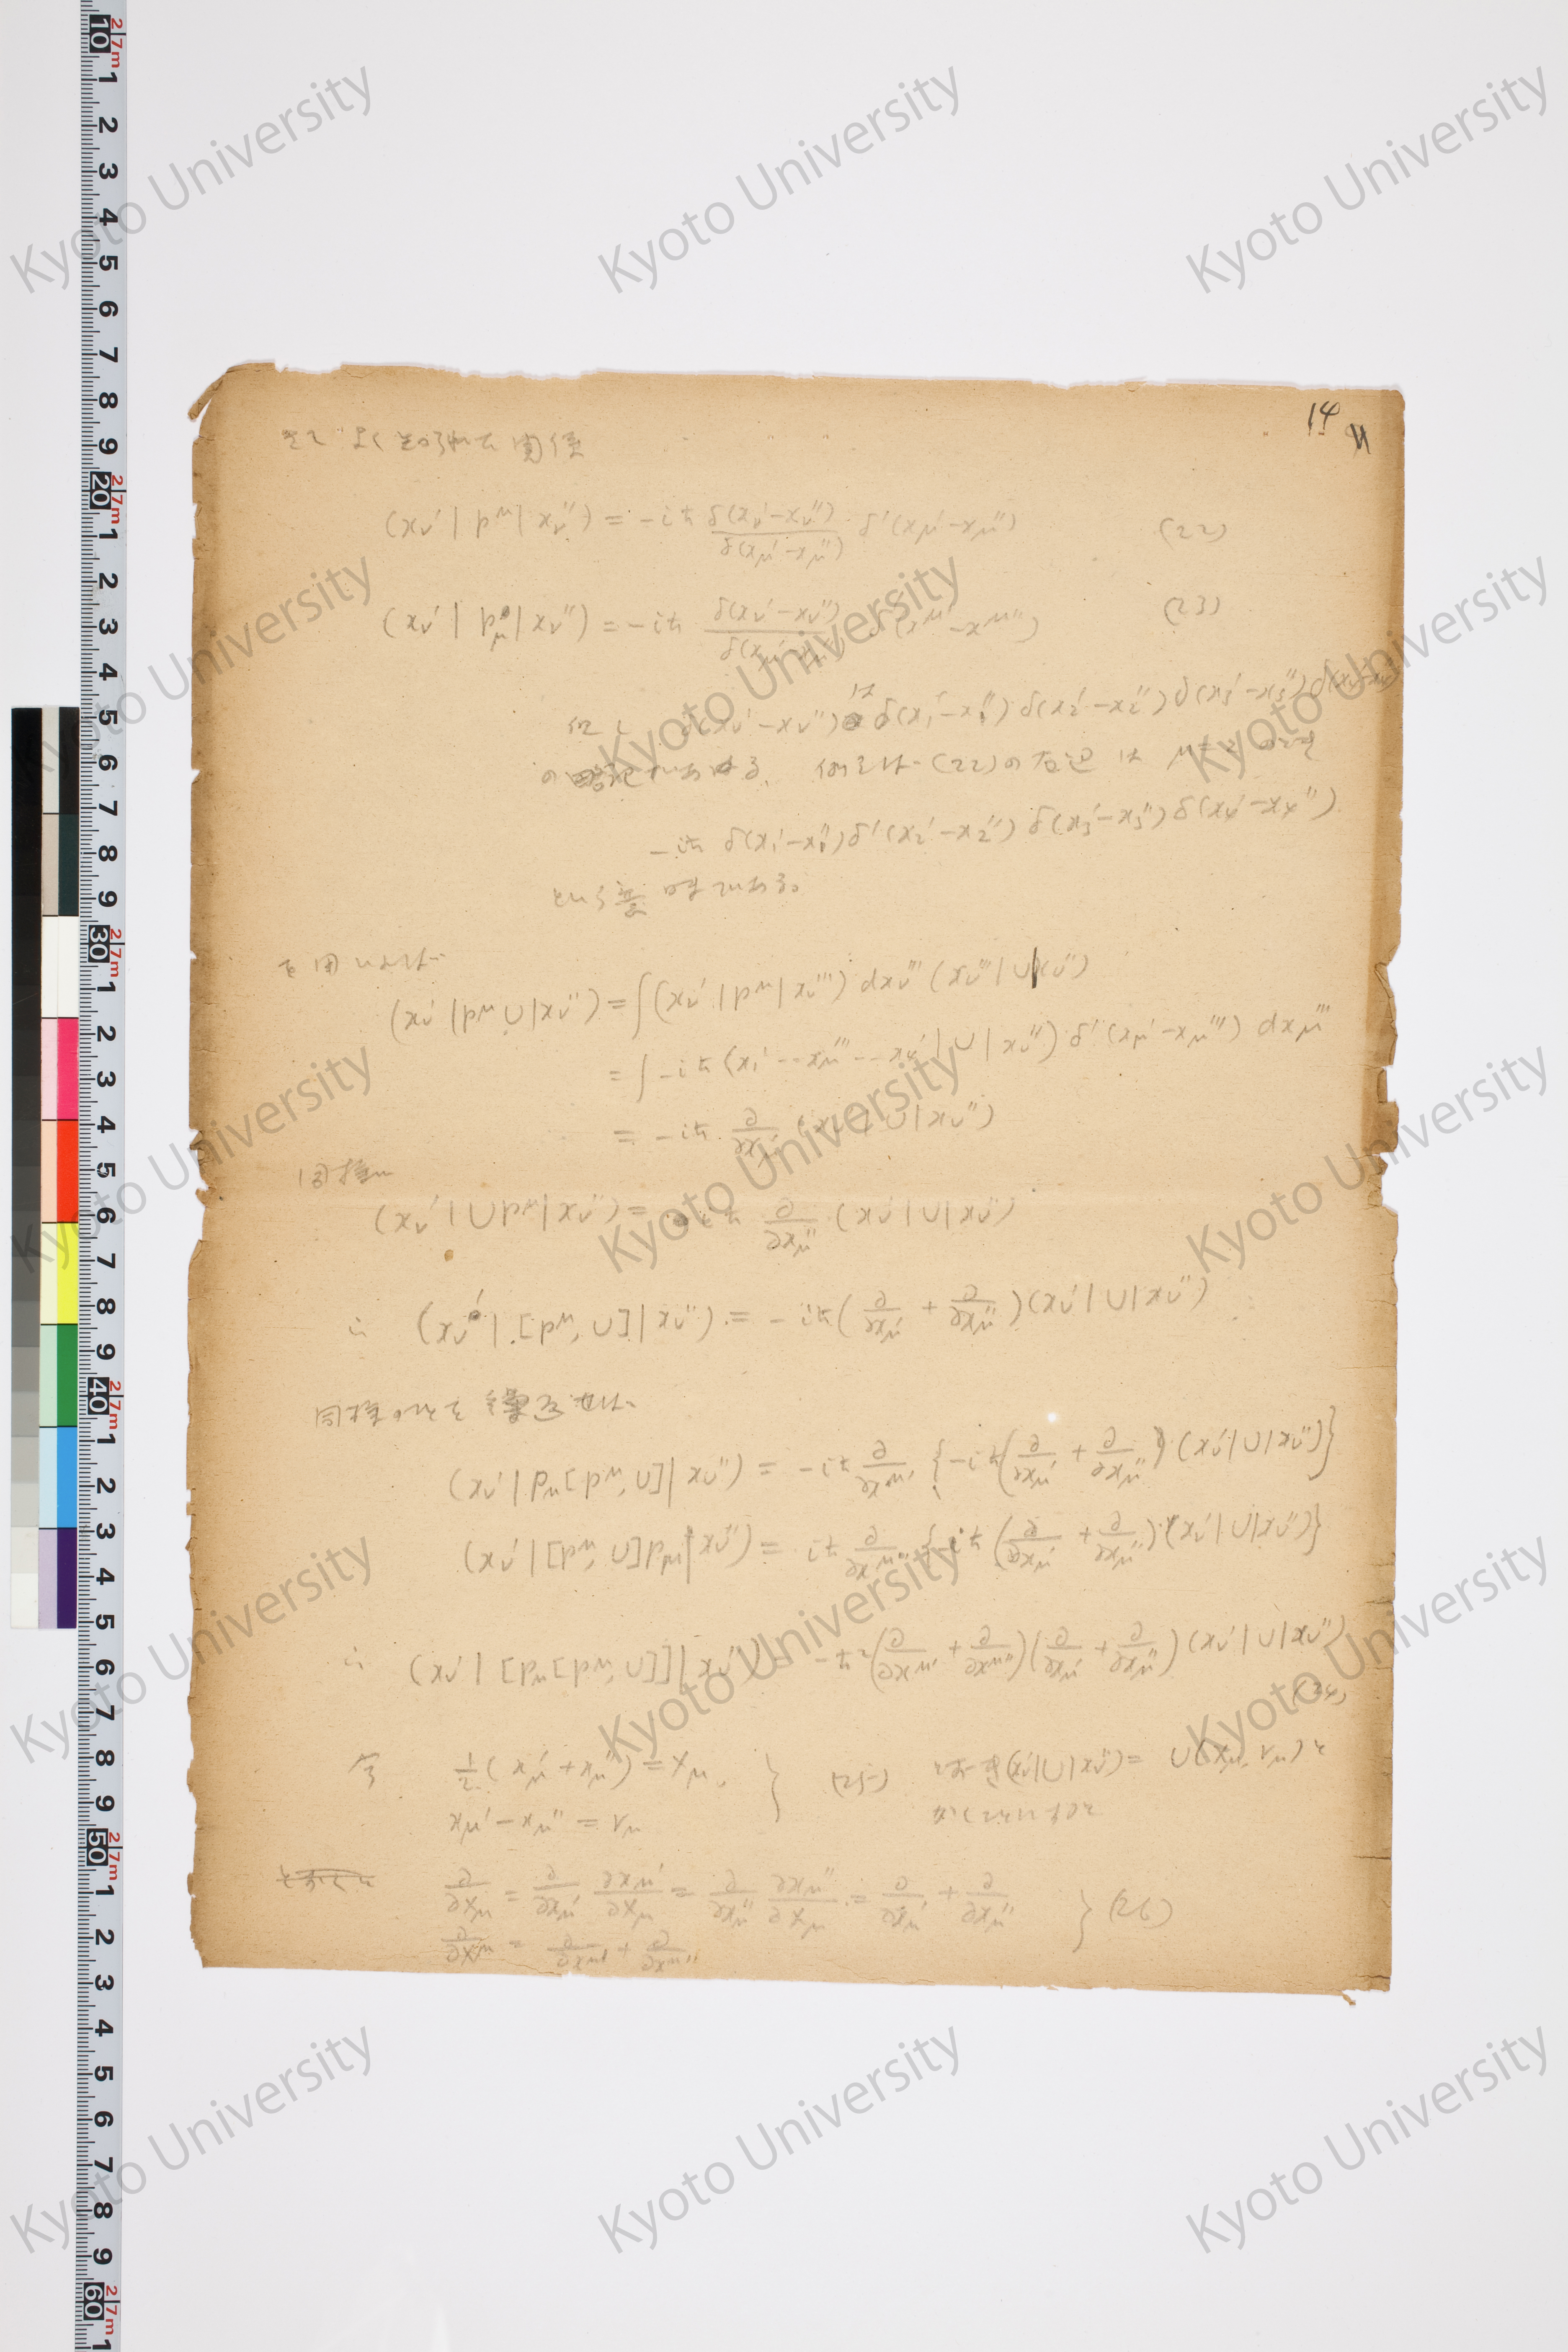 14
そこで よく知られた関係
(xν' | p^μ | xν'') = -iħ δ(xν'-xν'')/δ(xμ'-xμ'') δ'(xμ'-xμ'') (22)
(xν' | pμ | xν'') = -iħ δ(xν'-xν'')/δ(xμ'-xμ'') δ'(x^μ'-x^μ'') (23)
但し δ(xν'-xν'') は δ(x₁'-x₁'') δ(x₂'-x₂'') δ(x₃'-x₃'') δ(x₄'-x₄'')
の略記である. 例えば (22)の右辺は μ=2 のとき
-iħ δ(x₁'-x₁'') δ'(x₂'-x₂'') δ(x₃'-x₃'') δ(x₄'-x₄'')
という意味である。
を用いれば
(xν' | p^μ U | xν'') = ∫(xν' | p^μ | xν''') dxν''' (xν''' | U | xν'')
= ∫ -iħ (x₁' -- xμ''' -- x₄' | U | xν'') δ'(xμ'-xμ''') dxμ'''
= -iħ ∂/∂xμ' (xν' | U | xν'')
同様に
(xν' | U p^μ | xν'') = iħ ∂/∂xμ'' (xν' | U | xν'')
∴ (xν' | [p^μ, U] | xν'') = -iħ(∂/∂xμ' + ∂/∂xμ'')(xν' | U | xν'')
同様のことを繰返せば
(xν' | pμ[p^μ, U] | xν'') = -iħ ∂/∂x^μ' {-iħ(∂/∂xμ' + ∂/∂xμ'')(xν' | U | xν'')}
(xν' | [p^μ, U]pμ | xν'') = iħ ∂/∂x^μ'' {-iħ(∂/∂xμ' + ∂/∂xμ'')(xν' | U | xν'')}
∴ (xν' | [pμ[p^μ, U]] | xν'') = -ħ²(∂/∂x^μ' + ∂/∂x^μ'')(∂/∂xμ' + ∂/∂xμ'')(xν' | U | xν'')
(24)
今 ½(xμ' + xμ'') = Xμ, } (25) (xν' | U | xν'') = U(Xμ, rμ) と
xμ' - xμ'' = rμ かくことにすると
∂/∂Xμ = ∂/∂xμ' ∂xμ'/∂Xμ = ∂/∂xμ'' ∂xμ''/∂Xμ = ∂/∂xμ' + ∂/∂xμ'' } (26)
∂/∂X^μ = ∂/∂x^μ' + ∂/∂x^μ''